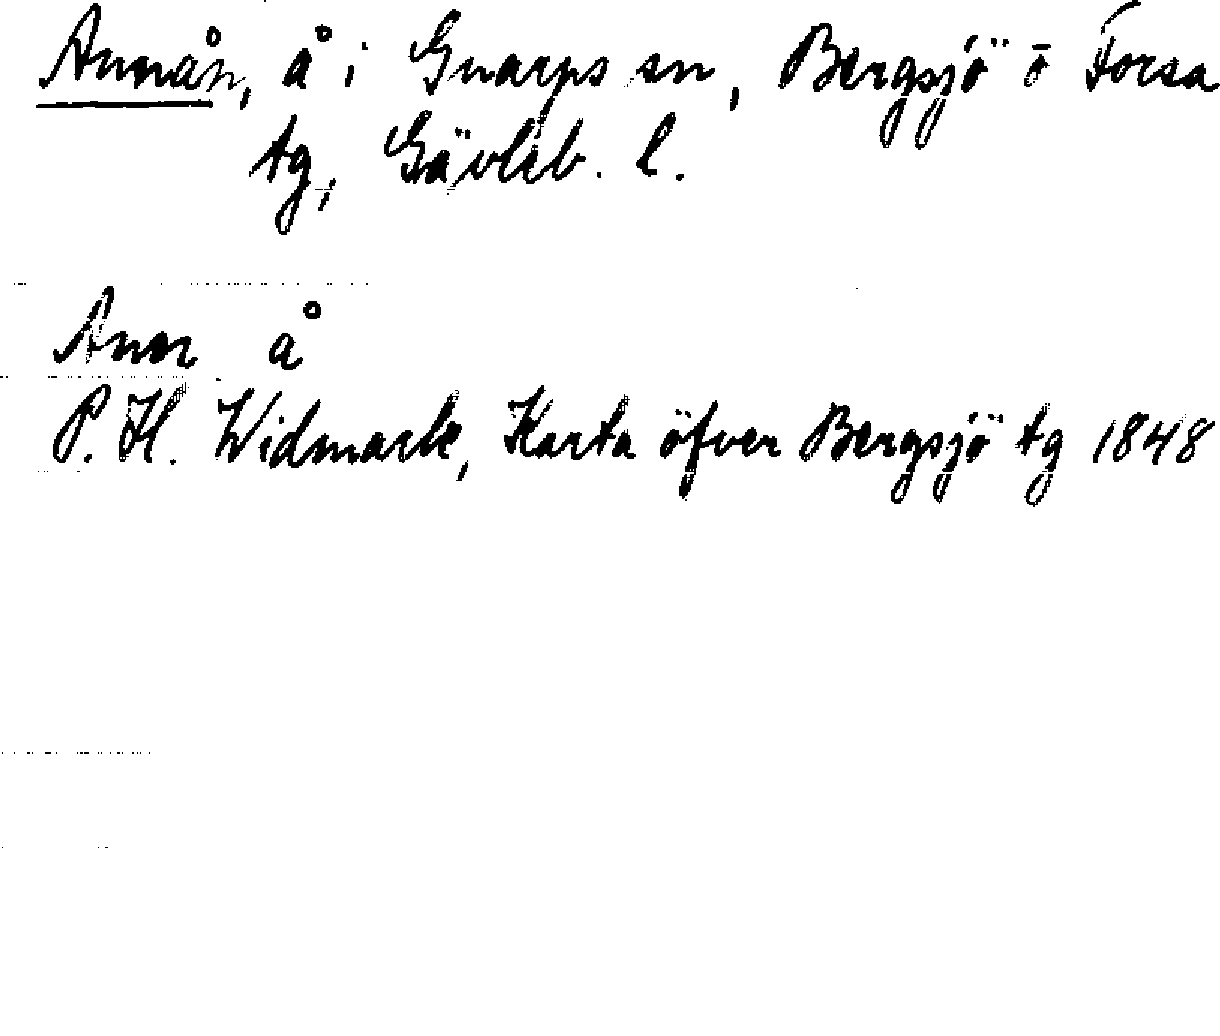 Annån, å i Gnarps sn, Bergsjö o Forsa
tg, Gävleb. l.
Ann å
P. H. Widmark, Karta öfver Bergsjö tg 1848